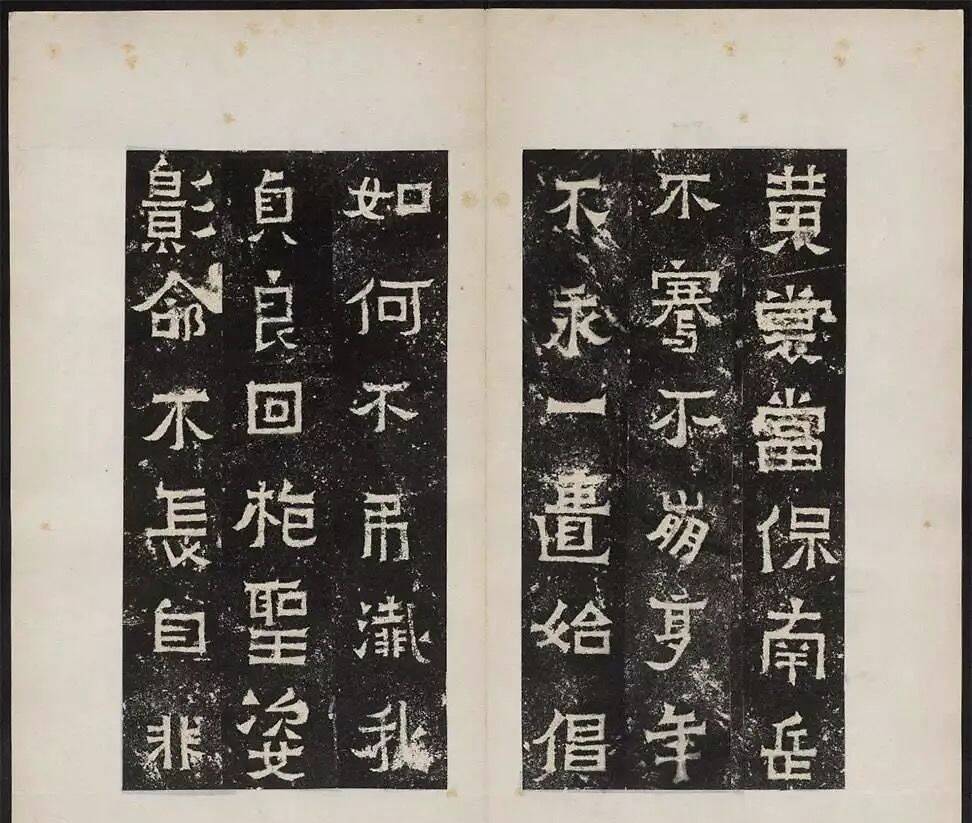 黄裳當保南岳
不騫不崩享年
不永一匱始倡
如何不弔瀸我
貞良回枹聖姿
影命不長自非